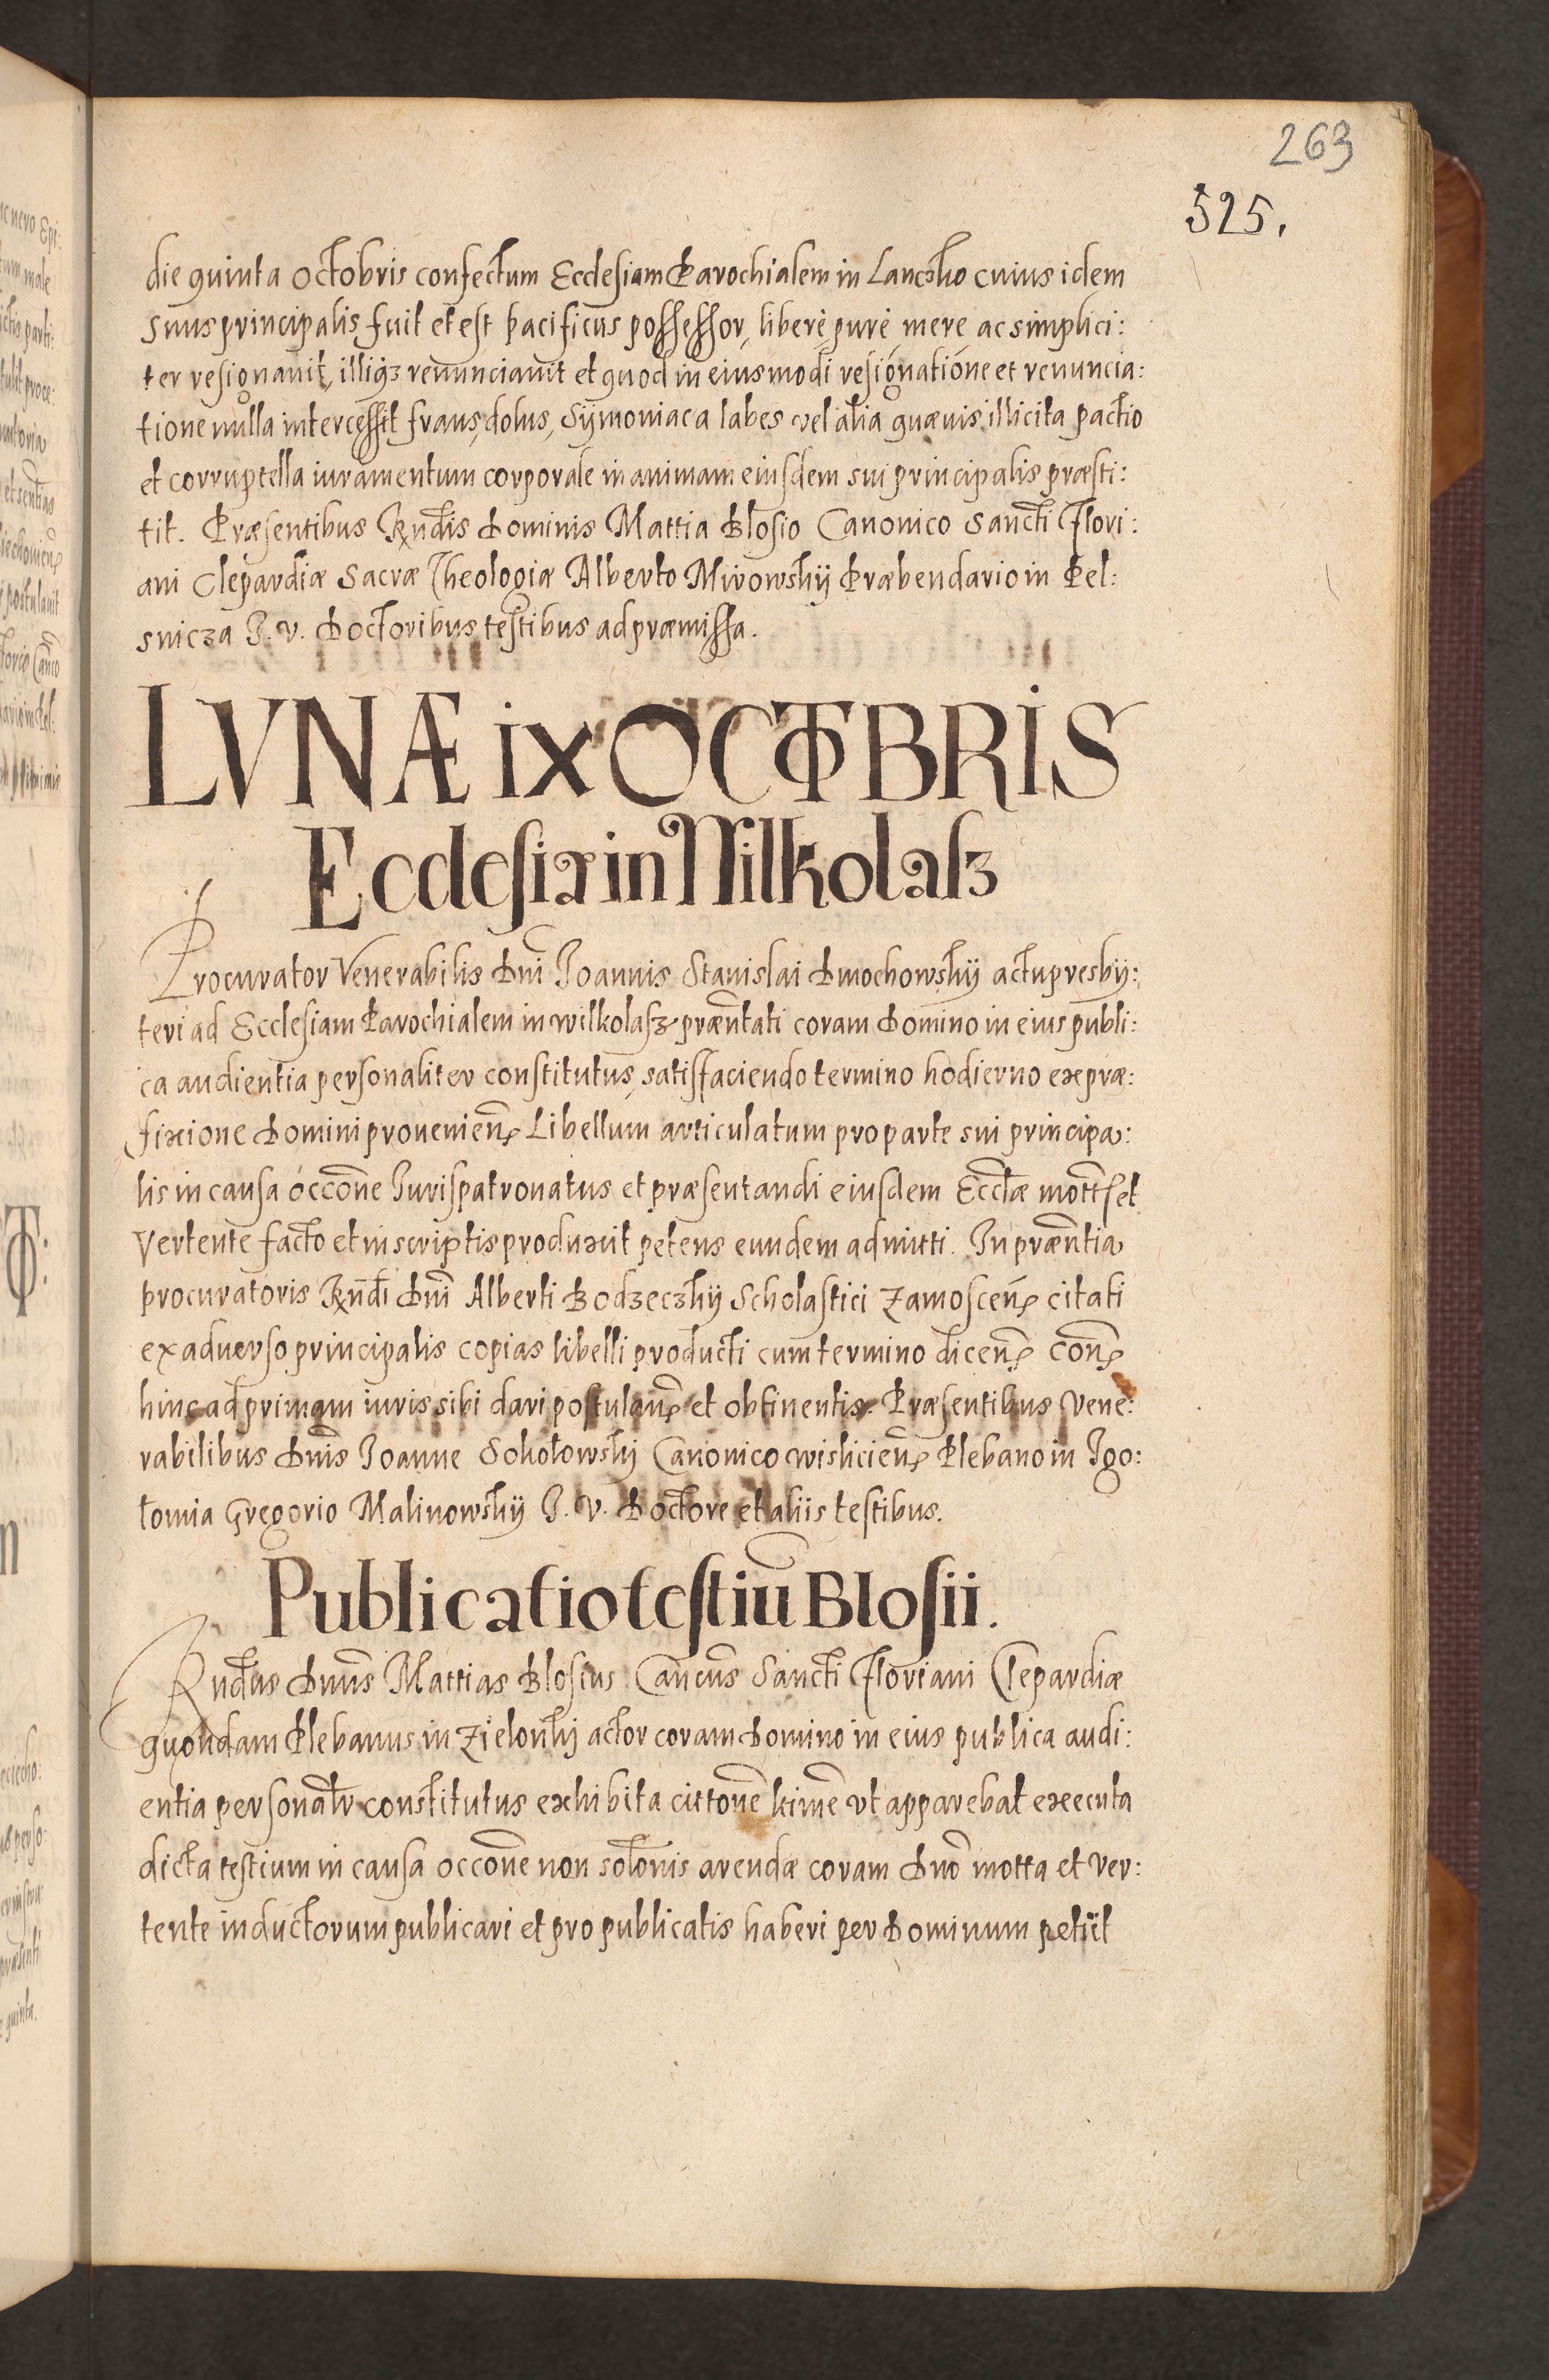 263
525.
die quinta Octobris confectum Ecclesiam Parochialem in Lanczko cuius idem
suus principalis fuit et est pacificus possessor, liberè, purè, merè, ac simplici:
ter resignavit, illiqз renunciavit et quod in eiusmodi resignatione et renuncia:
tione nulla intercessit fraus, dolus, Sÿmoniaca labes vel alia quævis illicita pactio
et corruptella iuramentum corporale in animam eiusdem sui principalis præsti:
tit. Præsentibus Rndis Dominis Mattia Blosio Canonico Sancti Flori:
ani Clepardiæ Sacræ Theologiæ Alberto Mirowskÿ Præbendario in Pel:
snicza J. V. Doctoribus testibus ad præmissa.
LVNÆ ix OCTOBRIS
Ecclesiæ in Wilkolasz
Procurator Venerabilis Dni Joannis Stanislai Dmochowskÿ actu presbÿ:
teri ad Ecclesiam Parochialem in Wilkolasz præntati coram Domino in eius publi:
ca audientia personaliter constitutus, satisfaciendo termino hodierno ex præ:
fixione Domini provenien̄ Libellum articulatum pro parte sui principa:
lis in causa occone Jurispatronatus et præsentandi eiusdem Eccliæ mott et
Vertente facto et in scriptis produxit petens eundem admitti. In præntia
procuratoris Rndi Dni Alberti Bodzeczkÿ Scholastici Zamoscen̄ citati
ex adverso principalis copias libelli producti cum termino dicen̄ con̄
hinc ad primam iuris sibi dari postulan̄ et obtinentis. Præsentibus Vene:
rabilibus Dnis Joanne Sokołowskÿ Canonico wislicien̄ Plebano in Jgo:
łomia Gregorio Malinowskÿ J. V. Doctore et aliis testibus.
Publicatio testiū Blosii.
Rndus Dnus Mattias Blosius Cancus Sancti Floriani Clepardiæ
quondam Plebanus in Zielonkÿ actor coram Domino in eius publica audi:
entia personalr constitutus exhibita cittone kimē ut apparebat executa
dicta testium in causa occone non solonis arendæ coram Dno motta et ver:
tente inductorum publicari et pro publicatis haberi per Dominum petiit